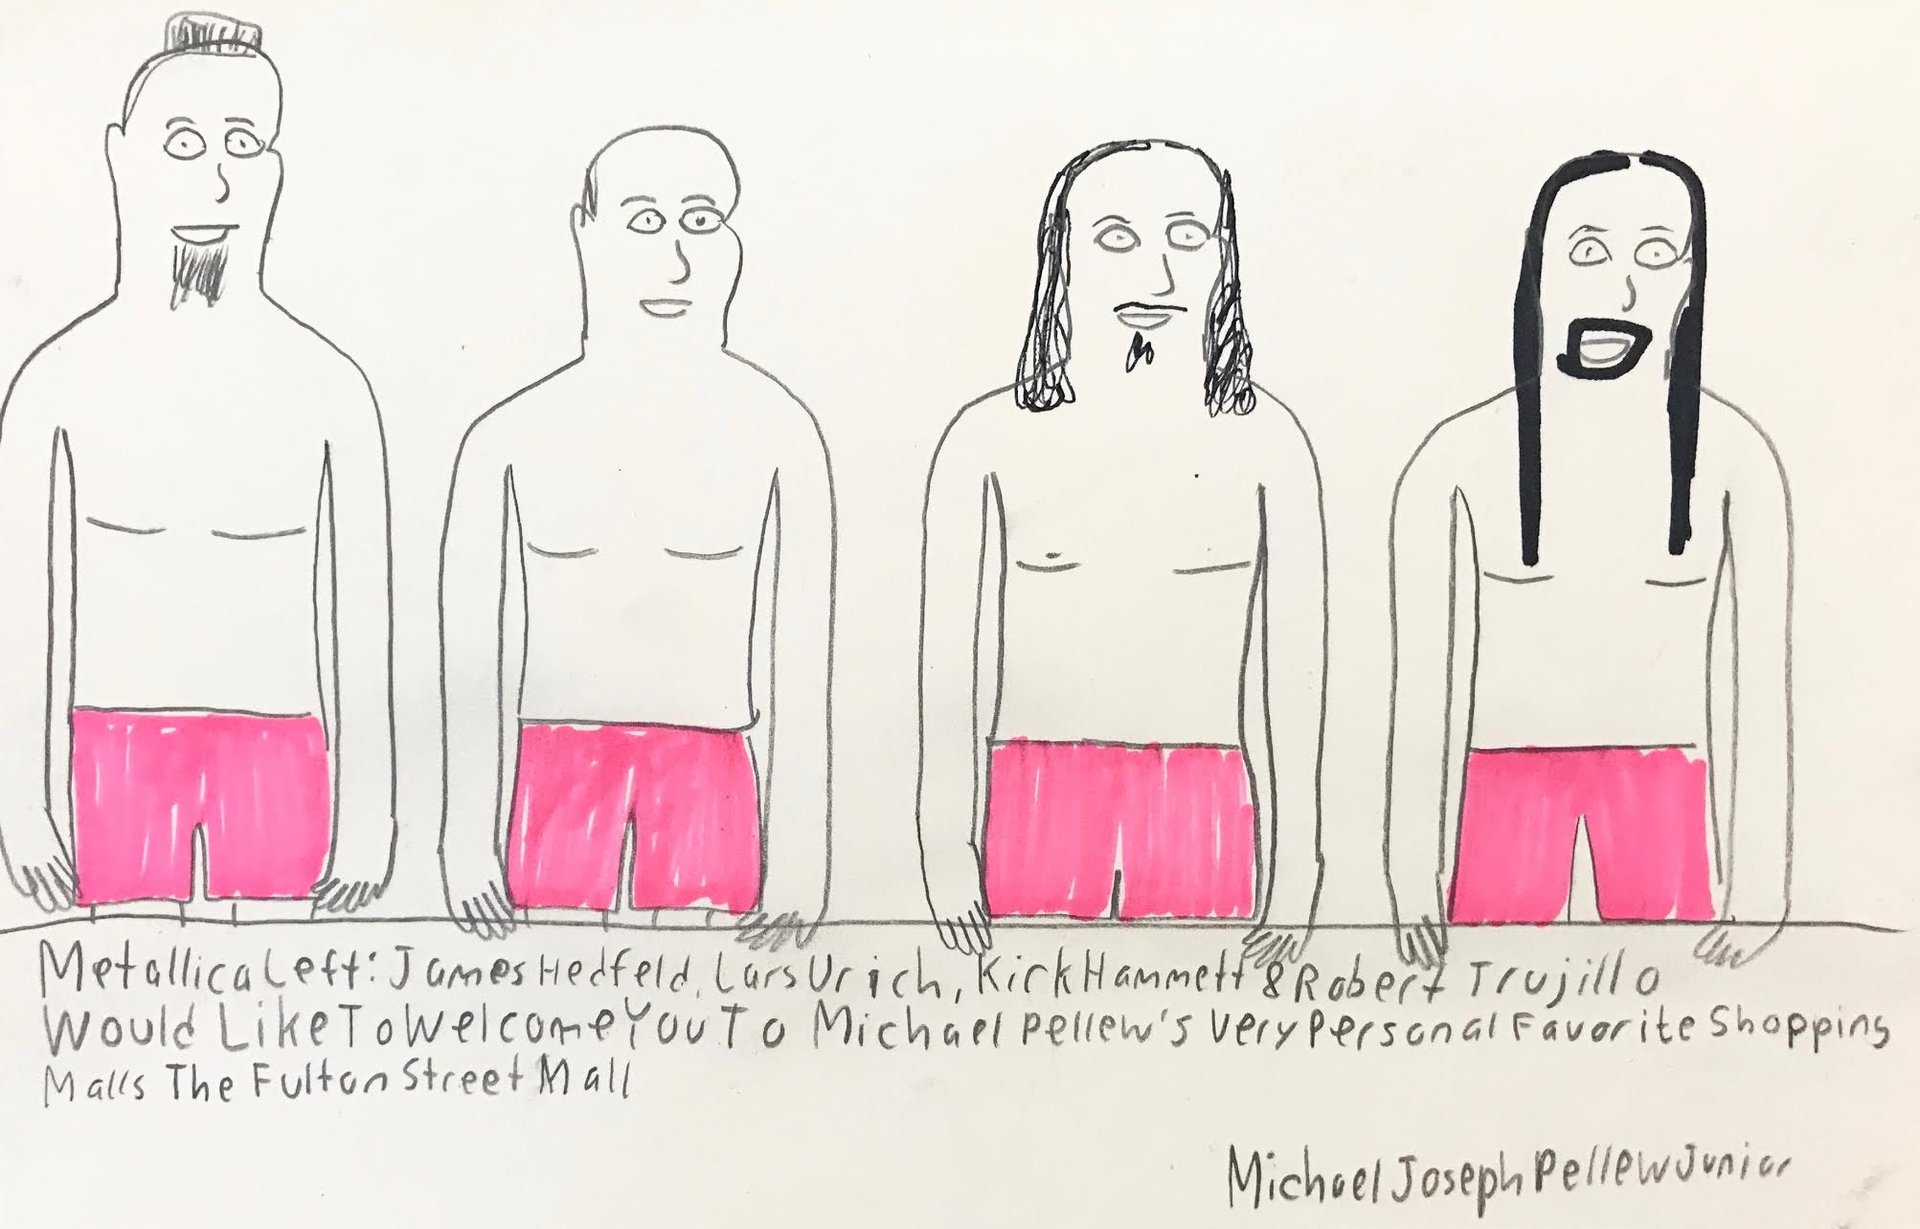 Metallica Left: James Hedfeld, Lars Urich, Kirk Hammett & Robert Trujillo
Would Like To Welcome You To Michael Pellew's Very Personal Favorite Shopping
Malls The Fulton Street Mall
Michael Joseph Pellew Junior